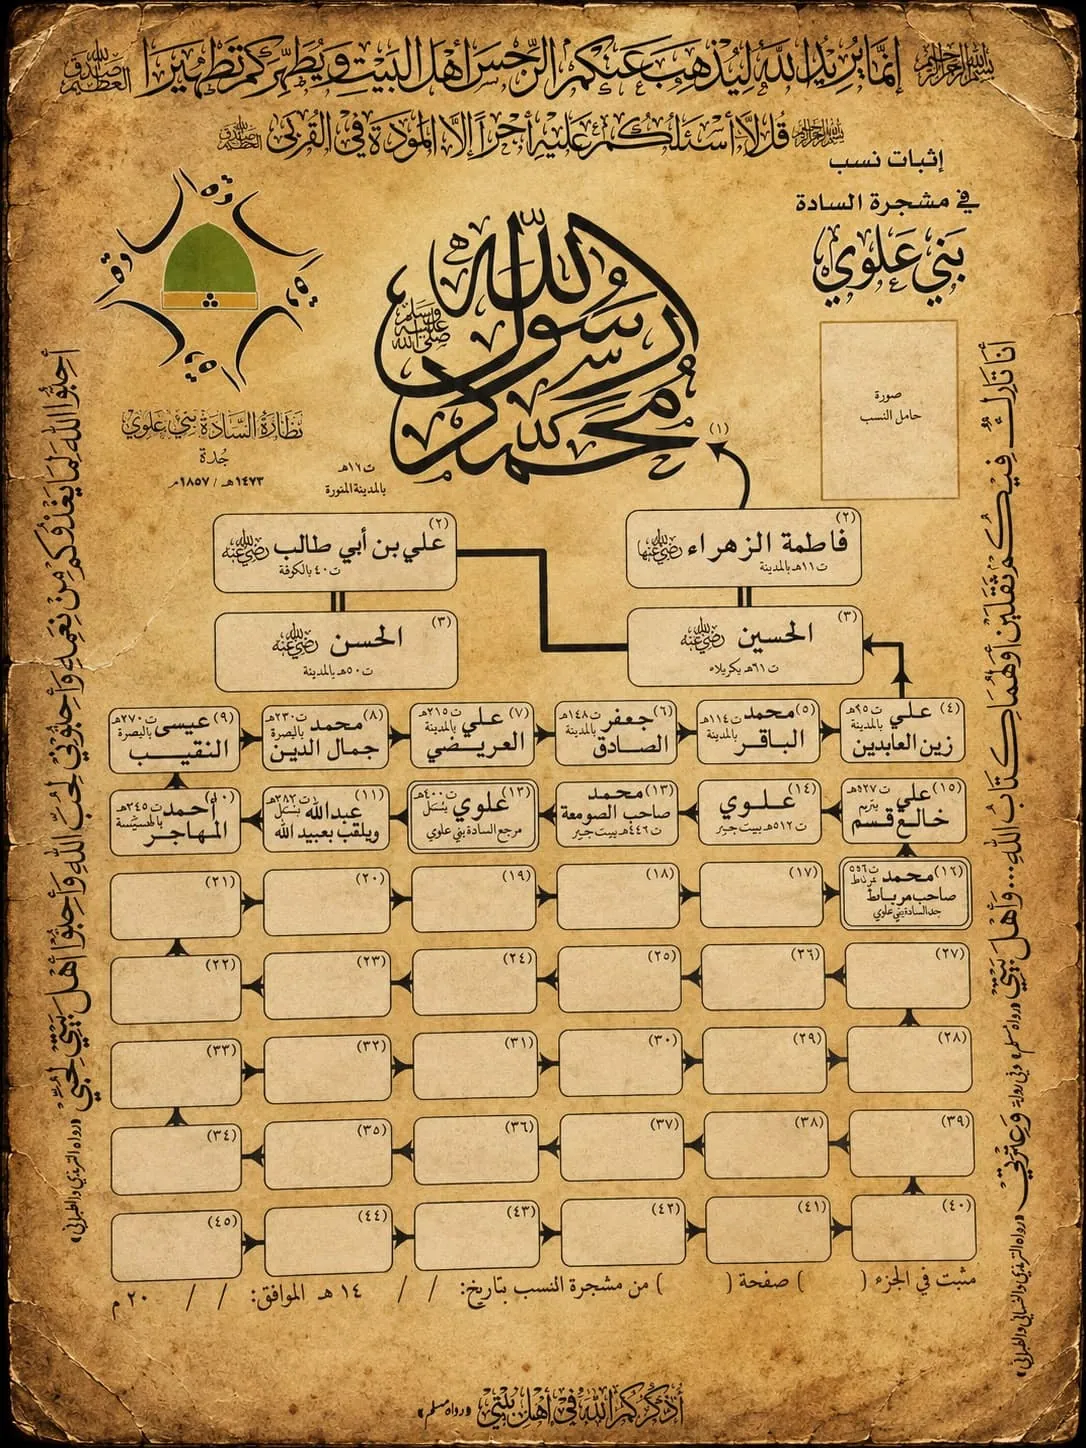 بسم الله الرحمن الرحيم إنما يريد الله ليذهب عنكم الرجس أهل البيت ويطهركم تطهيرا صدق الله العظيم
بسم الله الرحمن الرحيم قل لا أسئلكم عليه أجرا إلا المودة في القربى صدق الله العظيم
إثبات نسب
في مشجرة السادة
بني علوي
صورة
حامل النسب
نظارة السادة بني علوي
جدة
١٤٧٣هـ / ١٨٥٧م
محمد رسول الله
صلى الله عليه وسلم
(١)
ت١٦هـ
بالمدينة المنورة
(٢)
فاطمة الزهراء رضي الله عنها
ت١١هـ بالمدينة
(٢)
علي بن أبي طالب رضي الله عنه
ت٤٠ بالكوفة
(٣)
الحسين رضي الله عنه
ت٦١هـ بكربلاء
(٣)
الحسن رضي الله عنه
ت٥٠هـ بالمدينة
(٤) علي ت٩٥هـ بالمدينة
زين العابدين
(٥) محمد ت١١٤هـ بالمدينة
الباقر
(٦) جعفر ت١٤٨هـ بالمدينة
الصادق
(٧) علي ت٢١٥هـ بالمدينة
العريضي
(٨) محمد ت٢٣٠هـ بالبصرة
جمال الدين
(٩) عيسى ت٢٧٠هـ بالبصرة
النقيب
(١٥) علي ت٥٢٧هـ بتريم
خالع قسم
(١٤)
علوي
ت٥١٢هـ ببيت جبير
(١٣) محمد
صاحب الصومعة
ت٤٤٦هـ ببيت جبير
(١٣) علوي ت٤٠٠هـ بسمل
مرجع السادة بني علوي
(١١) عبدالله ت٣٨٣هـ بسمل
ويلقب بعبيد الله
(١٠) أحمد ت٣٤٥هـ
المهاجر
(١٦) محمد ت٥٥٦
صاحب مرباط
جد السادة بني علوي
(١٧)
(١٨)
(١٩)
(٢٠)
(٢١)
(٢٧)
(٢٦)
(٢٥)
(٢٤)
(٢٣)
(٢٢)
(٢٨)
(٢٩)
(٣٠)
(٣١)
(٣٢)
(٣٣)
(٣٩)
(٣٨)
(٣٧)
(٣٦)
(٣٥)
(٣٤)
(٤٠)
(٤١)
(٤٢)
(٤٣)
(٤٤)
(٤٥)
مثبت في الجزء ( ) صفحة ( ) من مشجرة النسب بتاريخ: / / ١٤ هـ الموافق: / / ٢٠ م
أذكركم الله في أهل بيتي «رواه مسلم»
أنا تارك فيكم ثقلين أولهما كتاب الله... وأهل بيتي «رواه مسلم» وفي رواية وعترتي «رواه الترمذي والنسائي والطبراني»
أحبوا الله لما يغذوكم من نعمه وأحبوني لحب الله وأحبوا أهل بيتي لحبي «رواه الترمذي والطبراني»